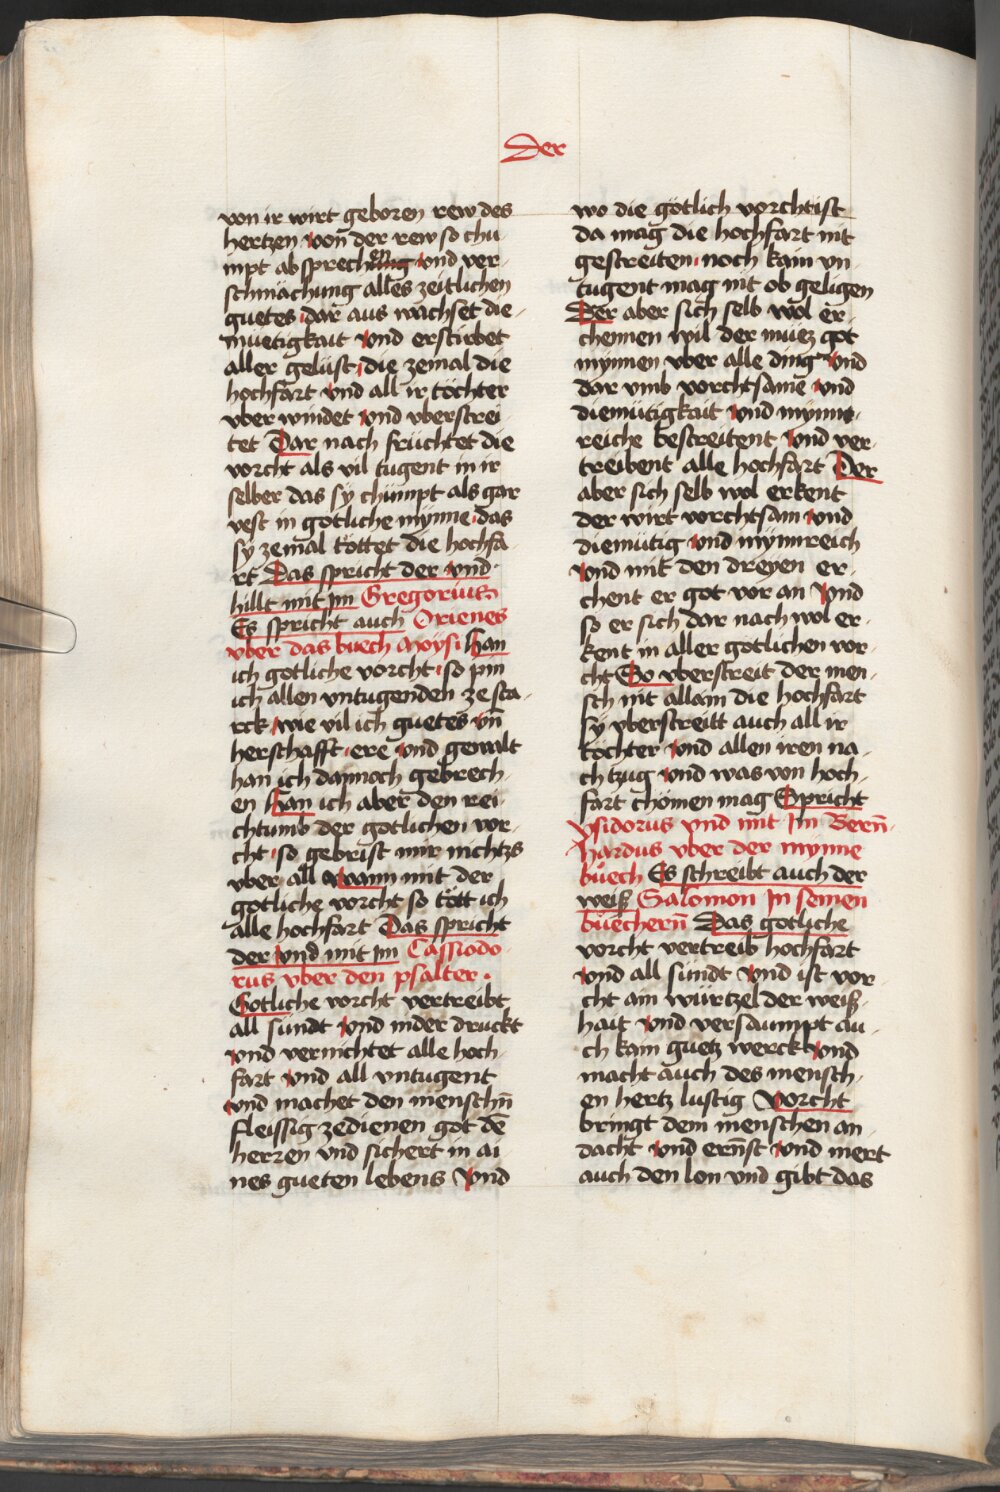 Der
von ir wirt geboren rew des
hertzen von der rew so chu-
mpt absprechung vnd ver-
schmächung alles zeitlichen
guetes dar aus wachset die-
muetigkait vnd erstirbet
aller gelüst die zemal die
hochfart vnd all ir töchter
vber windet vnd vberstrei-
tet Dar nach früchtet die
vorcht als vil tugent in ir
selber das sy chümpt als gar
vest in gotliche mynne das
sy zemal töttet die hochfa-
rt Das spricht der vnd
hillt mit im Gregorius
Es spricht auch Orienes
vber das buech Moysi Han
ich gotliche vorcht so pin
ich allen vntugenden ze sta-
rck wie vil ich guetes vn̄
herschafft ere vnd gewalt
han ich dannoch gebrech-
en Han ich aber den rei-
chtumb der gotlichen vor-
cht so gebrist mir nichtzs
vber all wann mit der
gotliche vorcht so tött ich
alle hochfart Das spricht
der vnd mit im Cassiodo-
rus vber den psalter.
Gotliche vorcht vertreibt
all sündt vnd nider druckt
vnd vernichtet alle hoch-
fart vnd all vntugent
vnd machet den menschn̄
fleissig ze dienen got dē
herren vnd sichert in ai-
nes gueten lebens Vnd
wo die götlich vorcht ist
da mag die hochfart nit
gestreiten noch kain vn-
tugent mag nit ob geligen
Der aber sich selb wol er-
chennen wil der müez got
mynnen vber alle ding vnd
dar vmb vorchtsame vnd
diemütigkait vnd mynne-
reiche bestreitent vnd ver-
treibent alle hochfart Der
aber sich selb wol erkent
der wirt vorchtsam vnd
diemütig vnd mynnreich
vnd mit den dreyen er-
chent er got vor an Vnd
so er sich dar nach wol er-
kent in aller gotlichen vor-
cht So vberstreit der men-
sch nit allain die hochfart
sy vberstreitt auch all ir
töchter vnd allen iren na-
chtzug vnd was von hoch-
fart chömen mag Spricht
ysidorus vnd mit im Bern̄-
hardus vber der mynne
buech Es schreibt auch der
weiß Salomon In seinen
büechern̄ Das gotliche
vorcht vertreib hochfart
vnd all sündt vnd ist vor-
cht am würtzel der weiß-
hait vnd versaumpt au-
ch kain guetz werck vnd
macht auch des mensch-
en hertz lustig Vorcht
bringt dem menschen an-
dacht vnd ern̄st vnd mert
auch den lon vnd gibt das